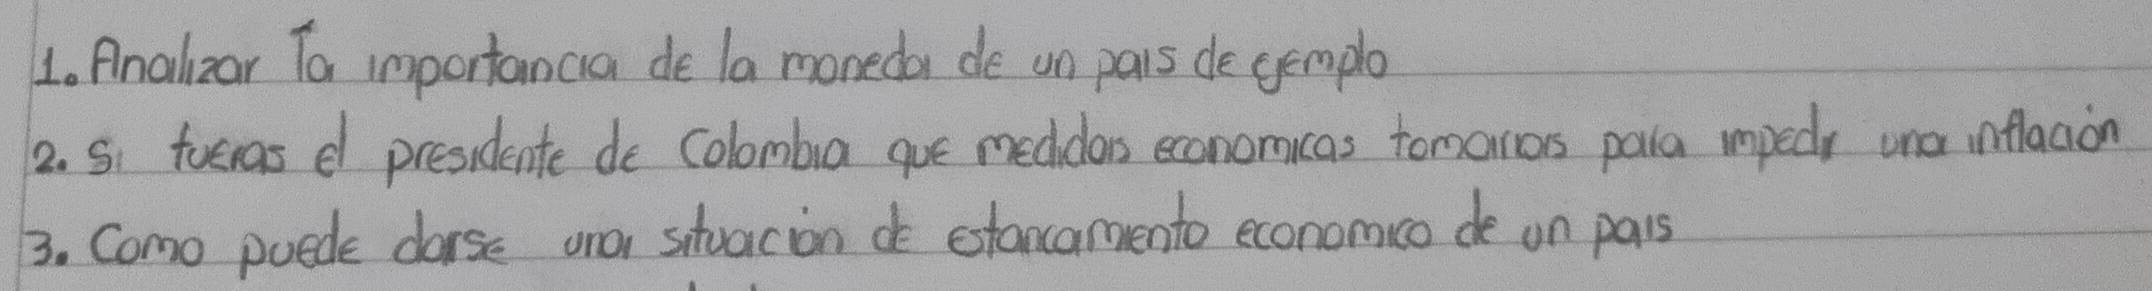 1. Analizar la importancia de la moneda de un pais de ejemplo
2. Si fueras el presidente de Colombia que medidas economicas tomarias para impedir una inflación
3. Como puede darse una situación de estancamiento economico de un pais